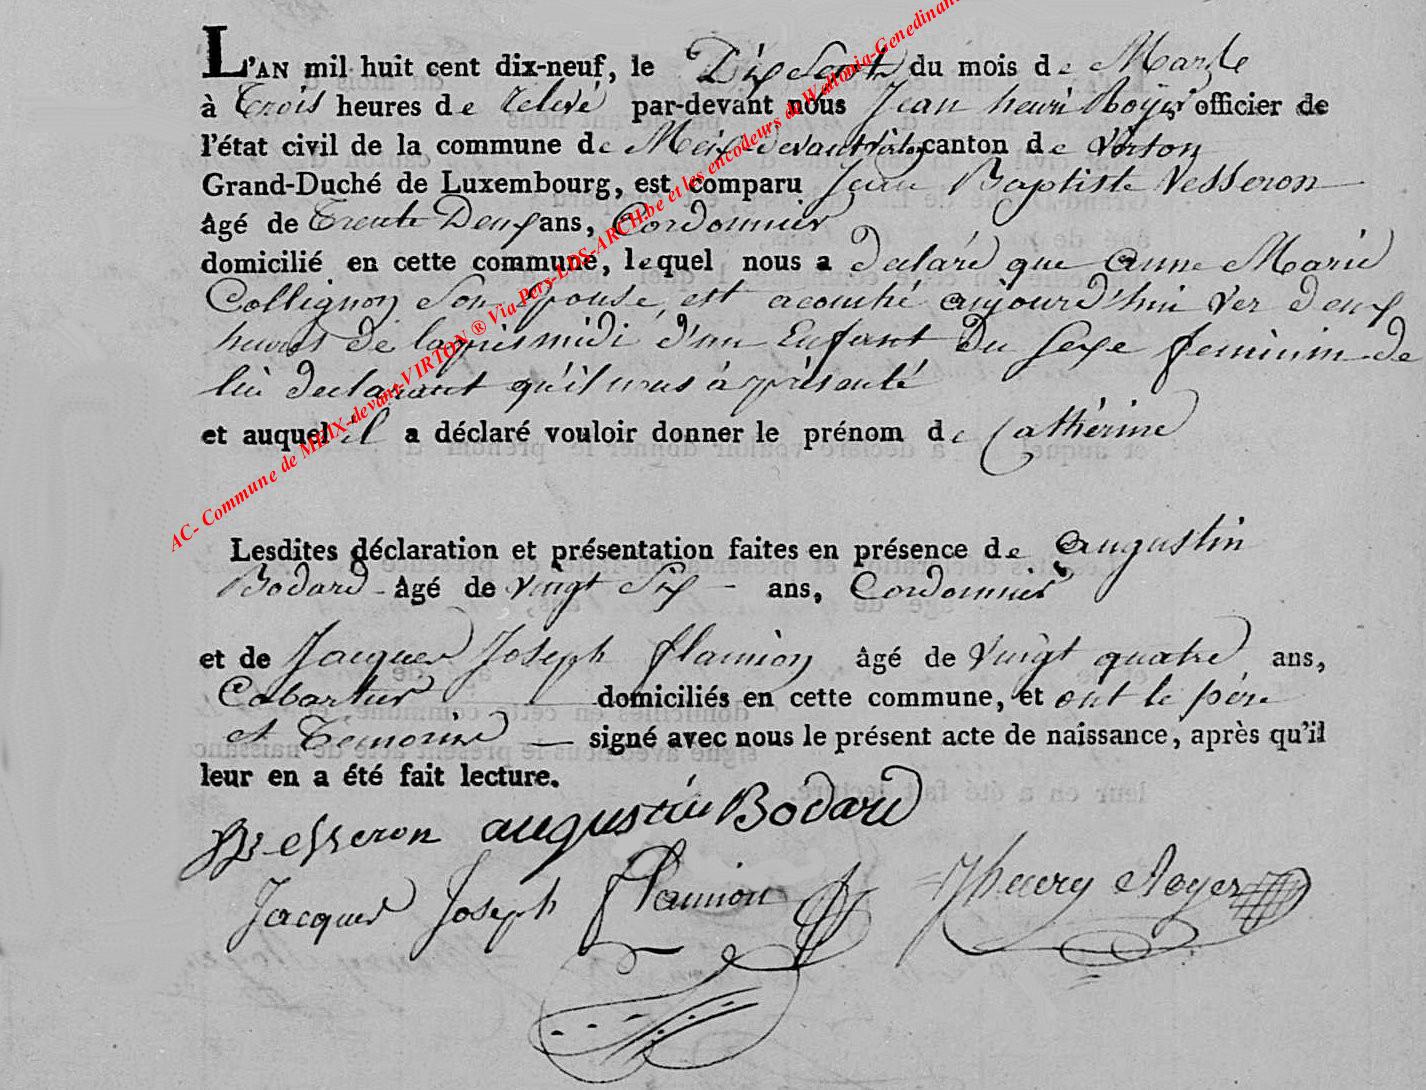 L'AN mil huit cent dix-neuf, le Dix Sept du mois de Mars
à Trois heures de relevé par-devant nous Jean henri Royer officier de
l'état civil de la commune de Meix-devantvirton canton de Virton
Grand-Duché de Luxembourg, est comparu Jean Baptiste Vesseron
âgé de Trente Deux ans, Cordonnier
domicilié en cette commune, lequel nous a déclaré que anne Marie
Collignon Son Epouse est acouché aujourd'hui ver deux
heures de lapresmidi d'un Enfant Du sexe feminim de
lui declarant qu'il nous à présenté
et auquel il a déclaré vouloir donner le prénom de Cathérine
Lesdites déclaration et présentation faites en présence de augustin
Bodard âgé de vingt Six ans, Cordonnier
et de Jacques Joseph flamion âgé de Vingt quatre ans,
Cabartier domiciliés en cette commune, et ont le père
et Temoins signé avec nous le présent acte de naissance, après qu'il
leur en a été fait lecture.
Vesseron augustin Bodard
Jacques Joseph flamion Jhenry Royer
AC- Commune de MEIX-devant-VIRTON ® Via Pers-LDS-ARCH.be et les encodeurs de Wallonia-Genedinant